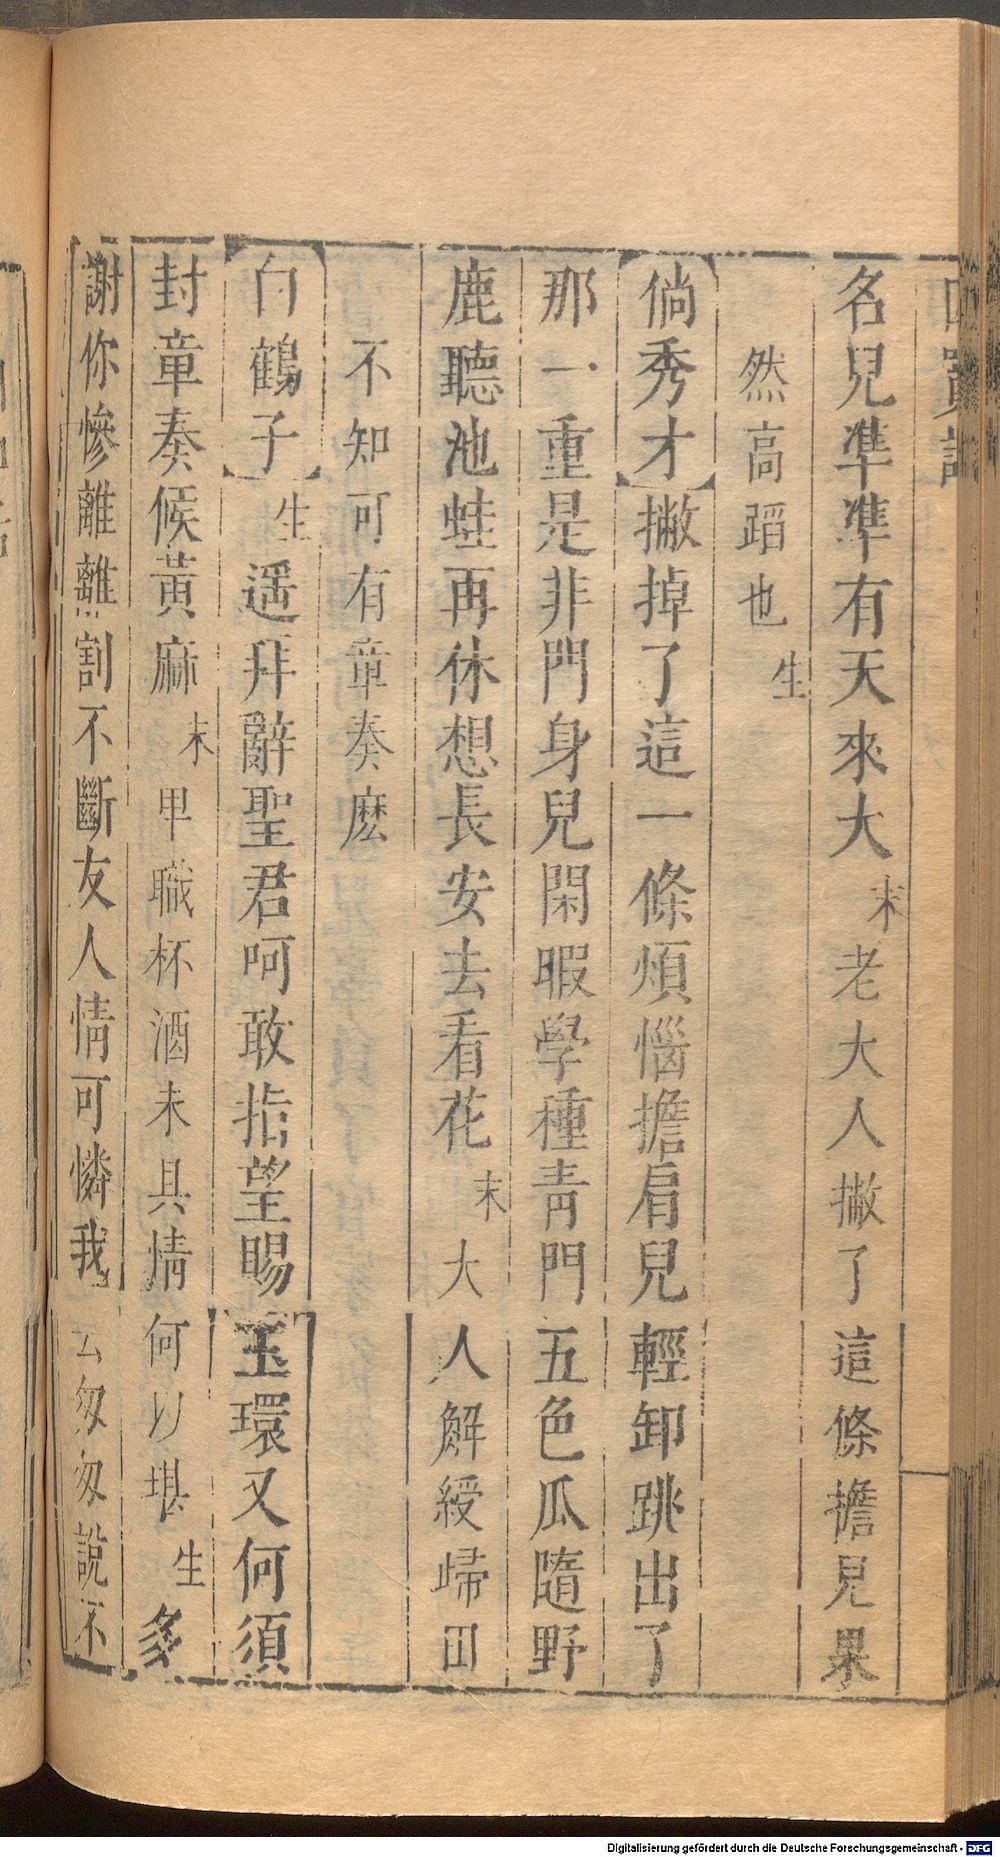 名兒準準有天來大末老大人撇了這條擔兒果
然高蹈也生
倘秀才撇掉了這一條煩惱擔肩兒輕卸跳出了
那一重是非門身兒閑暇學種青門五色瓜隨野
鹿聽池蛙再休想長安去看花末大人解綬歸田
不知可有章奏麽
白鶴子生遥拜辭聖君呵敢指望賜玉環又何須
封章奏候黃麻末甲職杯酒未具情何以堪生多
謝你慘離離割不斷友人情可憐我匆匆說不
Digitalisierung gefördert durch die Deutsche Forschungsgemeinschaft - DFG